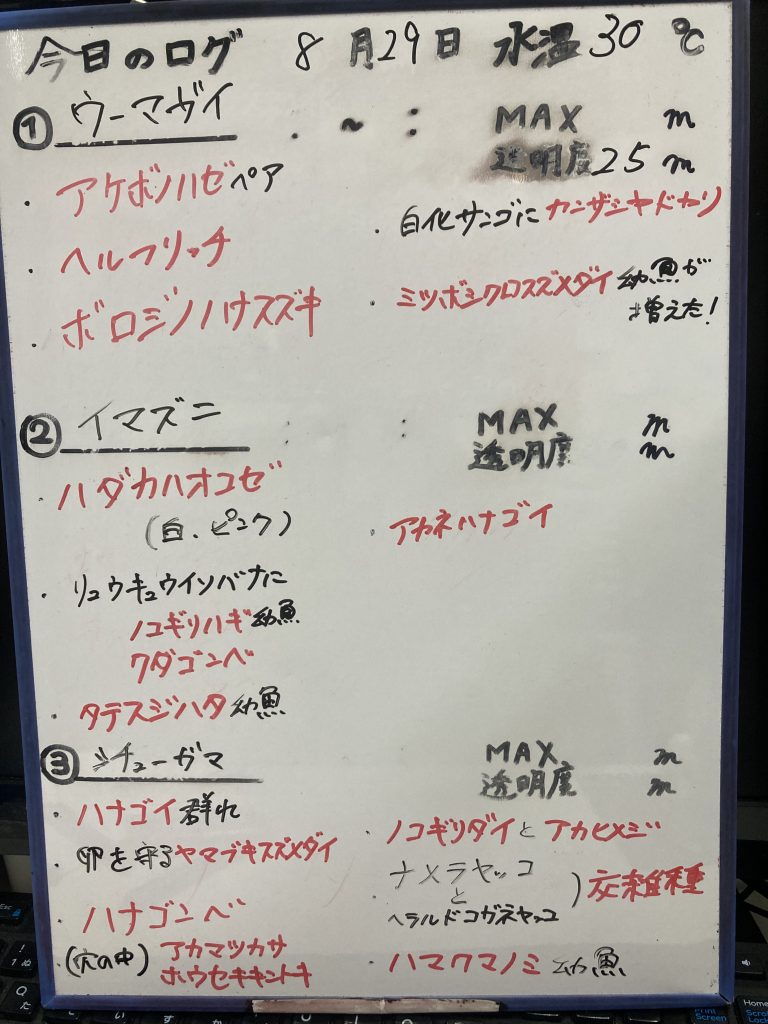 今日のログ 8月29日 水温30℃
① ウーマガイ . ~ : MAX m
透明度25m
・アケボノハゼペア
・ヘルフリッチ
・ボロジノハナスズキ
・白化サンゴにカンザシヤドカリ
・ミツボシクロスズメダイ幼魚が
増えた!
② イマズニ : : MAX m
透明度 m
・ハダカハオコゼ
(白、ピンク)
・リュウキュウイソバナに
ノコギリハギ幼魚
クダゴンベ
・タテスジハタ幼魚
・アカネハナゴイ
③ シチューガマ MAX m
透明度 m
・ハナゴイ群れ
・卵を守るヤマブキスズメダイ
・ハナゴンベ
・(穴の中) アカマツカサ
ホウセキキントキ
・ノコギリダイとアカヒメジ
・ナメラヤッコ
と ) 交雑種
ヘラルドコガネヤッコ
・ハマクマノミ幼魚
Esc
Print Screen
Scroll Lock
Home